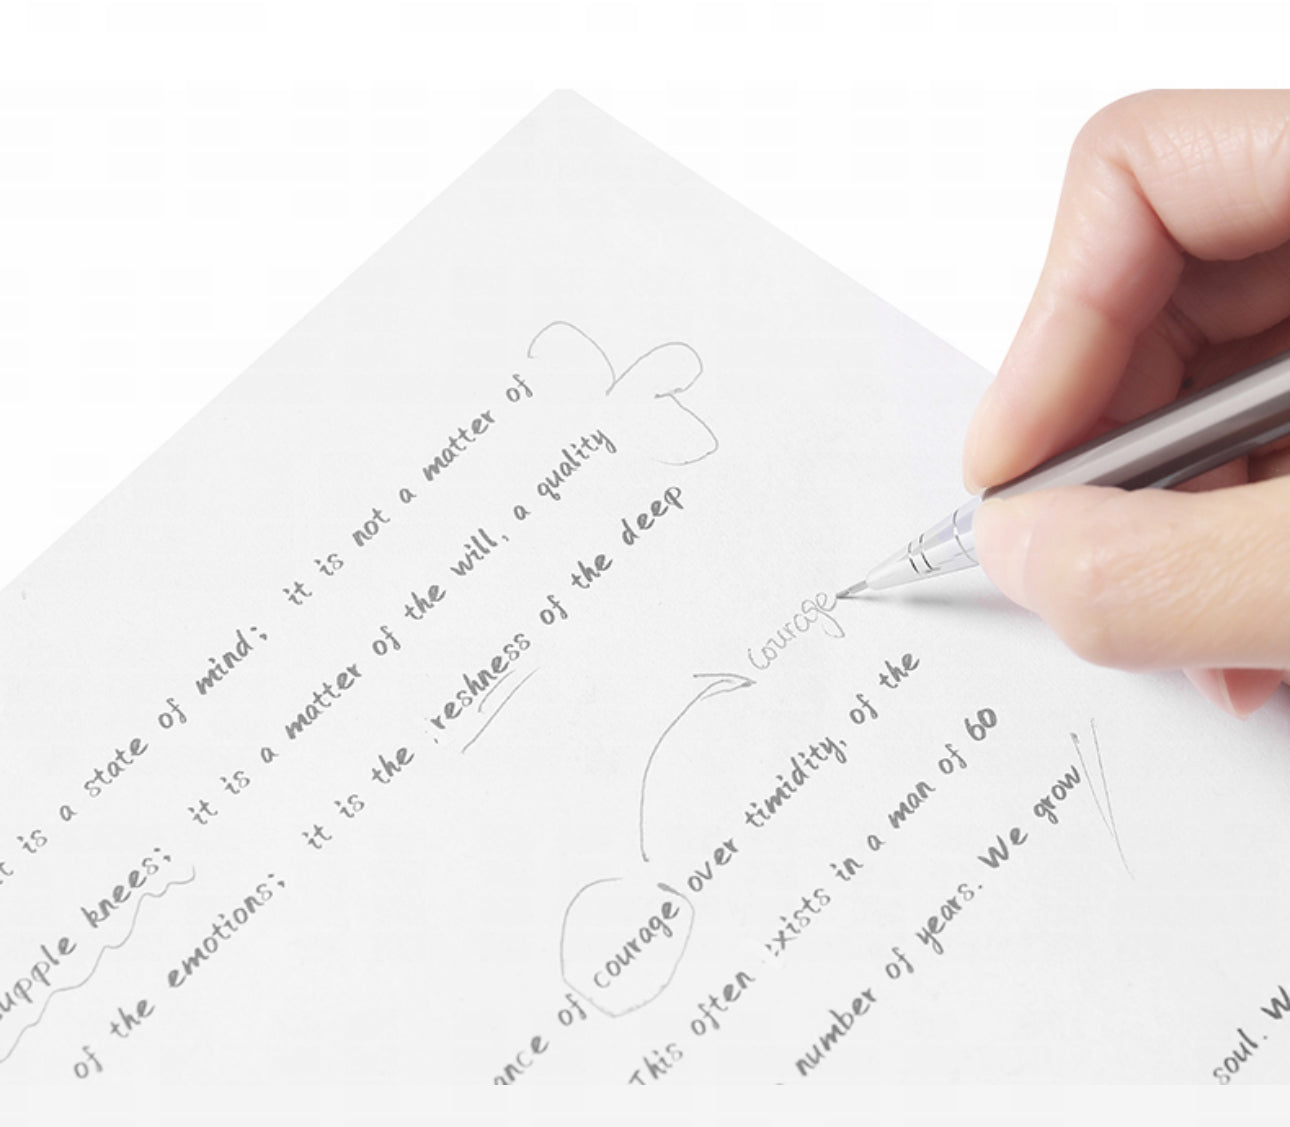 it is a state of mind; it is not a matter of
supple knees; it is a matter of the will, a quality
of the emotions; it is the reshness of the deep
courage
of courage over timidity, of the
This often exists in a man of 60
number of years. We grow
soul.